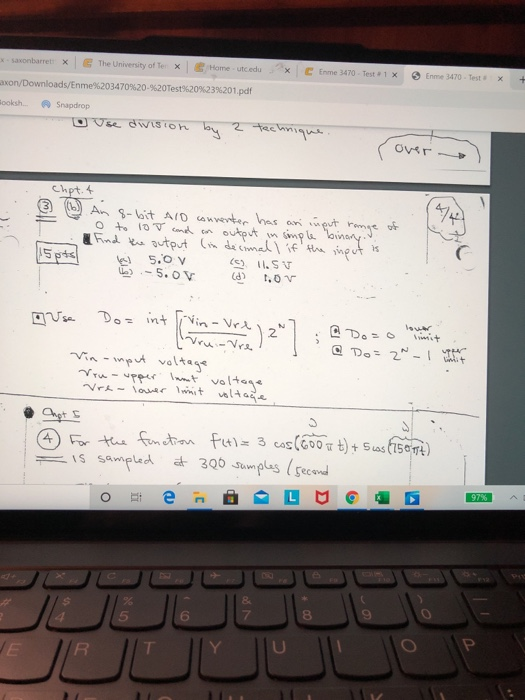 saxonbarrett X The University of Te X Home - utc.edu X Enme 3470 - Test # 1 X Enme 3470 - Test # X +
axon/Downloads/Enme%203470%20-%20Test%20%23%201.pdf
ooksh... Snapdrop
Use division by 2 technique.
over →
Chpt. 4
4/4
③ (b) An 8-bit A/D converter has an input range of
0 to 10 V and an output in simple binary.
Find the output (in decimal) if the input is
15 pts
(a) 5.0 V (c) 11.5 V
(b) -5.0 V (d) 1.0 V
Use Do = int [(Vin - Vrl / Vru - Vrl) 2^N] ; Do = 0 lower limit
Do = 2^N - 1 upper limit
Vin - input voltage
Vru - upper limit voltage
Vrl - lower limit voltage
Chpt 5
④ For the function f(t) = 3 cos(600πt) + 5 cos(750πt)
is sampled at 300 samples/second
97%
$ 4 % 5 6 & 7 * 8 ( 9 ) 0
E R T Y U I O P